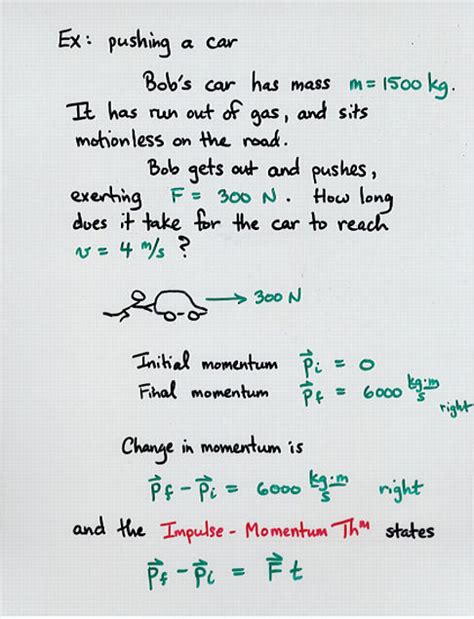 Ex: pushing a car
Bob's car has mass m = 1500 kg.
It has run out of gas, and sits
motionless on the road.
Bob gets out and pushes,
exerting F = 300 N. How long
does it take for the car to reach
v = 4 m/s ?
→ 300 N
Initial momentum p⃗i = 0
Final momentum p⃗f = 6000 kg·m/s right
Change in momentum is
p⃗f - p⃗i = 6000 kg·m/s right
and the Impulse - Momentum Thᵐ states
p⃗f - p⃗i = F⃗ t